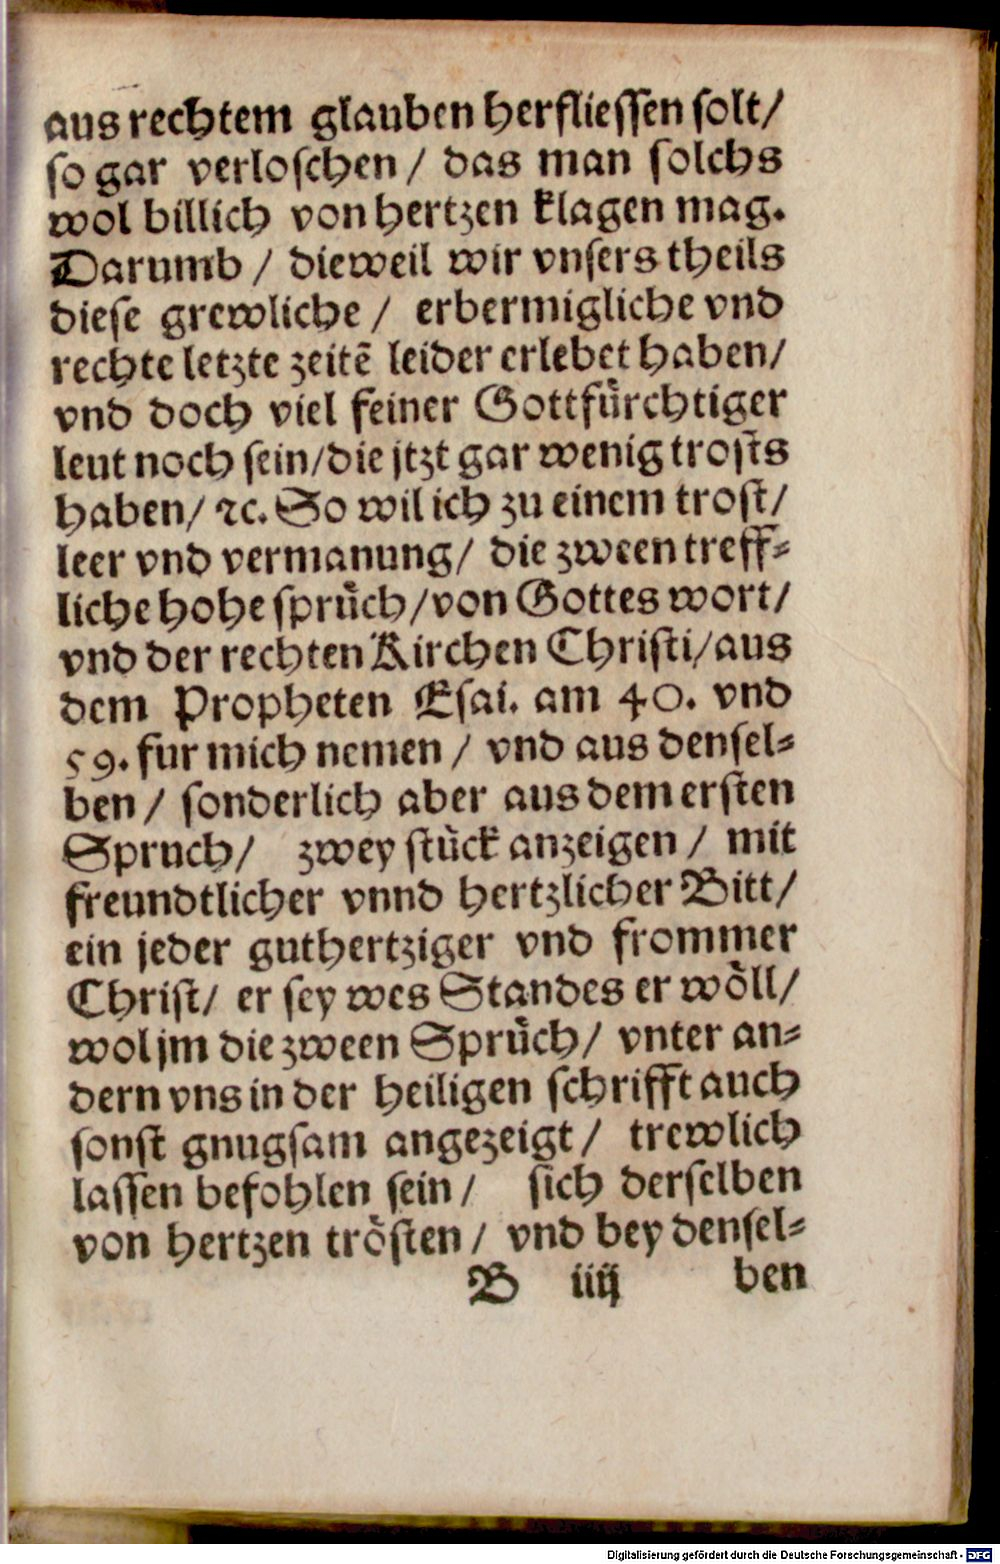 aus rechtem glauben herfliessen solt/
so gar verloschen / das man solchs
wol billich von hertzen klagen mag.
Darumb / dieweil wir vnsers theils
diese grewliche / erbermigliche vnd
rechte letzte zeitẽ leider erlebet haben/
vnd doch viel feiner Gottfuͤrchtiger
leut noch sein/die jtzt gar wenig trosts
haben/ ꝛc. So wil ich zu einem trost/
leer vnd vermanung/ die zween treff⸗
liche hohe spruͤch/von Gottes wort/
vnd der rechten Kirchen Christi/aus
dem Propheten Esai. am 40. vnd
59. fur mich nemen / vnd aus densel⸗
ben / sonderlich aber aus dem ersten
Spruch/ zwey stuͤck anzeigen / mit
freundtlicher vnnd hertzlicher Bitt/
ein jeder guthertziger vnd frommer
Christ/ er sey wes Standes er woͤll/
wol jm die zween Spruͤch/ vnter an⸗
dern vns in der heiligen schrifft auch
sonst gnugsam angezeigt/ trewlich
lassen befohlen sein/ sich derselben
von hertzen troͤsten/ vnd bey densel⸗
B iiij ben
Digitalisierung gefördert durch die Deutsche Forschungsgemeinschaft - DFG